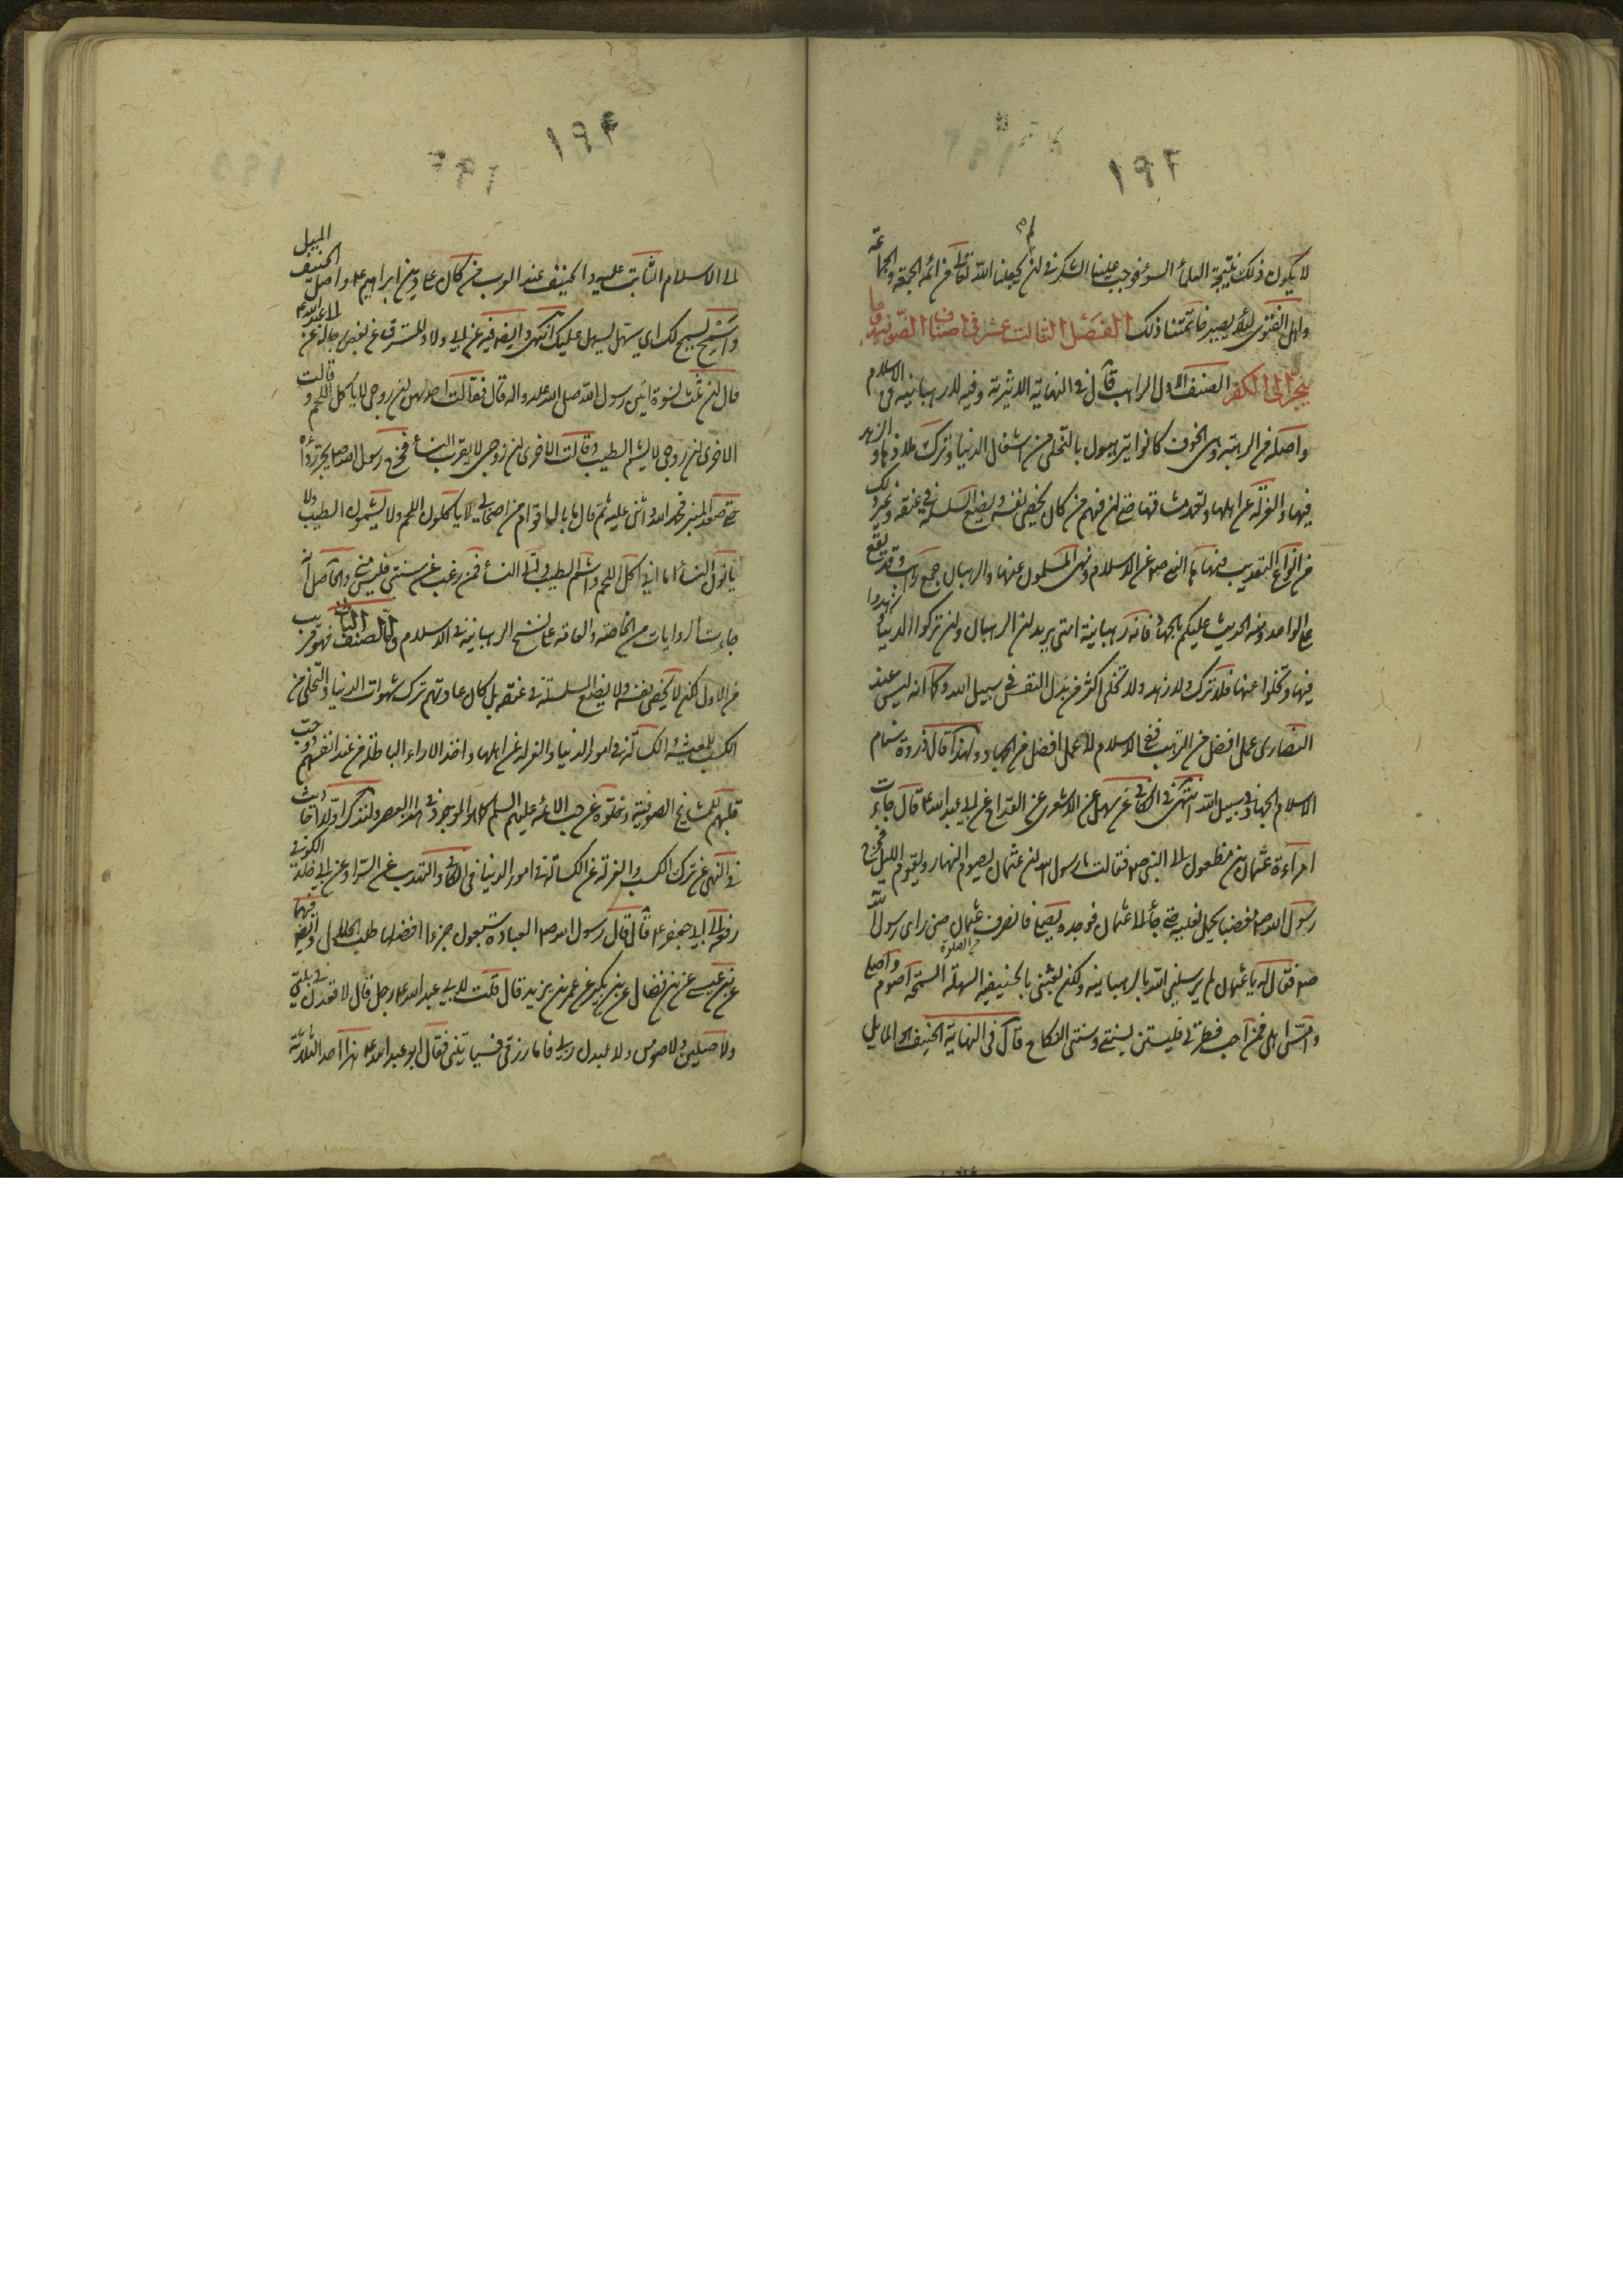 ۱۹۲
لا يكون ذلك نتيجة العلمأ السوء فوجب علينا الشكر فى ان لم يجعلنا الله تعالى من ائمه الجمعة والجماعة
واهل الفتوى لئلا يصير خاتمتنا ذلك الفصل الثالث عشر فى اصناف الصوفيه وما
ينجر الى الكفر الصنف الاول الراهب قال فى النهاية الاثيرية وفيه لا رهبانية فى الاسلام
واصله من الرهبة وهى الخوف كانوا يترهبون بالتخلى من اشغال الدنيا وترك ملاذها والزهد
فيها والعزلة عن اهلها وتعمد مشاقها حتى ان فمنهم من كان يخصى نفسه ويضع السلسلة فى عنقه وغير ذلك
من انواع التعذيب فنهاها النبى صم عن الاسلام ونهى المسلمون عنها والرهبان جمع راهب وقد يقع
على الواحد ومنه الحديث عليكم بالجهاد فانه رهبانية امتى يريد ان الرهبان وان تركوا الدنيا وزهدوا
فيها وتخلوا عنها فلا ترك ولا زهد ولا تخلى اكثر من بذل النفس فى سبيل الله وكما انه ليس عند
النصارى عمل افضل من الترهب ففى الاسلام لا عمل افضل من الجهاد ولهذا قال ذروة سنام
الاسلام الجهاد فى سبيل الله انتهى فى الكافى عن سهل عن الاشعرى عن القداح عن ابى عبد الله ع قال جاءت
امراءة عثمان بن مظعون الى النبى صم فقالت يا رسول الله ان عثمان يصوم النهار ويقوم الليل فخرج
رسول الله صم مغضبا يحمل نعليه حتى جأ الى عثمان فوجده يصلى فانصرف عثمان من الصلوة حين راى رسول الله
صم فقال له يا عثمان لم يرسلنى الله بالرهبانية ولكن بعثنى بالحنيفية السهلة السمحة اصوم واصلى
وامس اهلى فمن احب فطرتى فليستن بسنتى وسنتى النكاح قال فى النهاية الحنيف المايل
۱۹۲
الى الاسلام الثابت عليه والحنيف عند العرب من كان على دين ابراهيم ع واصل الحنيف الميل
واسمح يسمح لك اى يسهل يسهل عليك انتهى وايضا فيه عن على ولا وللمشرق عن بعض رجاله عن ابى عبد الله ع
قال ان ثلث نسوة اتين رسول الله صلى الله عليه واله قال فقالت احديهن ان زوجى لا ياكل اللحم وقالت
الاخرى ان زوجى لا يشم الطيب وقالت الاخرى ان زوجى لا يقرب النسأ فخرج رسول الله صم يجر ردأه
حتى صعد المنبر فحمد الله واثنى عليه ثم قال ما بال اقوام من اصحابى لا ياكلون اللحم ولا يشمون الطيب ولا
ياتون النسأ اما انى اكل اللحم واشم الطيب واتى النسأ فمن رغب عن سنتى فليس منى والحاصل انه
جاءت الروايات من الخاصة والعامة على نسخ الرهبانية فى الاسلام واما الصنف الثانى فهو قريب
من الاول لكنه لا يخصى نفسه ولا يضع السلسلة فى عنقه بل كان عادتهم ترك شهوات الدنيا والتخلى من
الكسب للمعيشه الكسالة فى امور الدنيا والعزلة عن اهلها واخذ الاراء الباطلة من عند انفسهم وحب
قلبهم للمشايخ الصوفية وخلوه عن حب الائمه عليهم السلم كما هو الموجود فى هذا العصر ولنذكر اولا احاديث
فى النهى عن ترك الكسب والعزلة عن الكسالة فى امور الدنيا فى الكافى والتهذيب عن السراد عن ابى خالد الكوفى
رفعه الى ابى جعفر ع قال قال رسول الله صم العبادة سبعون جزءا افضلها طلب الحلال وايضا فيهما
عن عيسى عن بن فضال عن بن بكير عن عمر بن يزيد قال قلت لابى عبد الله ع رجل قال لاقعدن فى بيتى
ولاصلين ولاصومن ولاعبدن ربى فاما رزقى فسياتينى فقال ابو عبد الله ع هذا احد الثلاثة